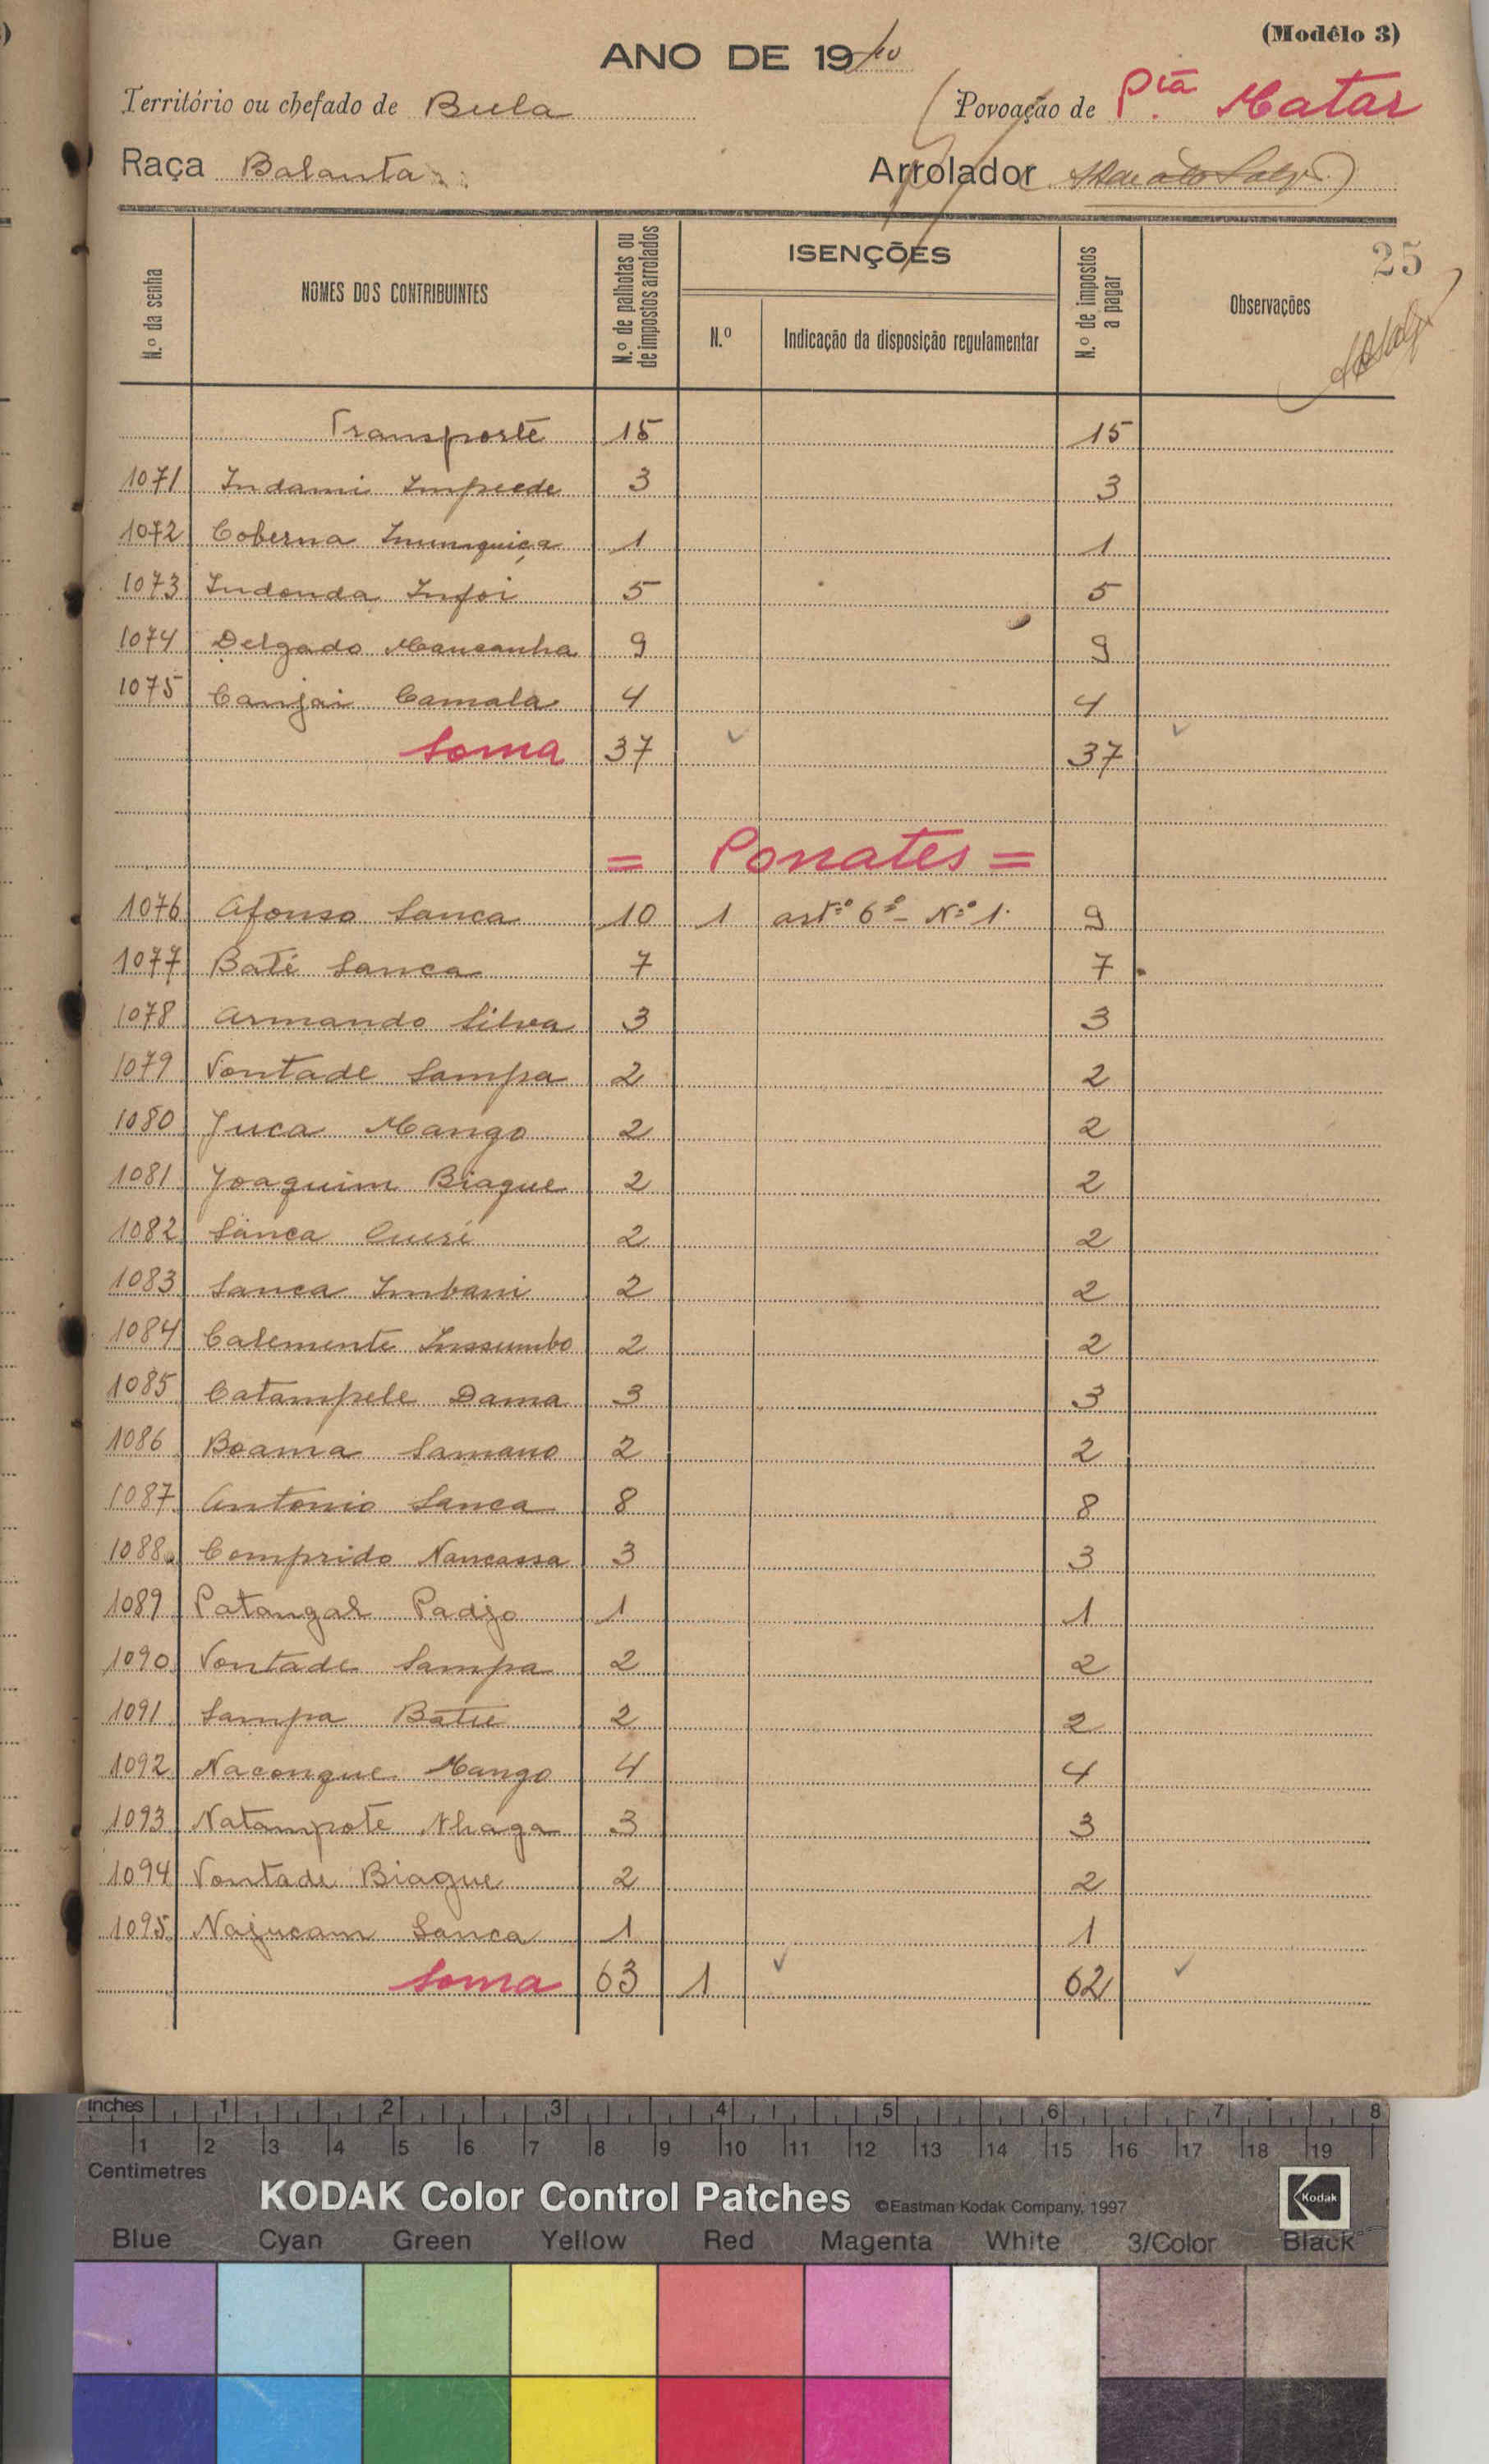 (Modêlo 3)
ANO DE 1940
Território ou chefado de Bula
Povoação de P.tã Matar
Raça Balanta
Arrolador
25
N.º da senha
NOMES DOS CONTRIBUINTES
N.º de palhotas ou de impostos arrolados
ISENÇÕES
N.º
Indicação da disposição regulamentar
N.º de impostos a pagar
Observações
Transporte 15 15
1071 Indami Impeede 3 3
1072 Coberna 1 1
1073 Indonda Infoi 5 5
1074 Delgado Mancanha 9 9
1075 Canjai Camala 4 4
Soma 37 37
= Ponates =
1076 Afonso Sanca 10 1 artº 6º - Nº 1. 9
1077 Baté Sanca 7 7
1078 Armando Silva 3 3
1079 Vontade Sampa 2 2
1080 Juca Mango 2 2
1081 Joaquim Biague 2 2
1082 Sanca 2 2
1083 Sanca Imbani 2 2
1084 Calemente Inssumbo 2 2
1085 Catampele Dama 3 3
1086 Boama Samano 2 2
1087 Antonio Sanca 8 8
1088 Comprido Nancassa 3 3
1089 Patangal Padjo 1 1
1090 Vontade Sampa 2 2
1091 Sampa Batie 2 2
1092 Nacongue Mango 4 4
1093 Natampote Nhaga 3 3
1094 Vontade Biague 2 2
1095 Najucam Sanca 1 1
Soma 63 1 62
Inches 1 2 3 4 5 6 7 8
1 2 3 4 5 6 7 8 9 10 11 12 13 14 15 16 17 18 19
Centimetres
KODAK Color Control Patches ©Eastman Kodak Company, 1997 Kodak
Blue Cyan Green Yellow Red Magenta White 3/Color Black